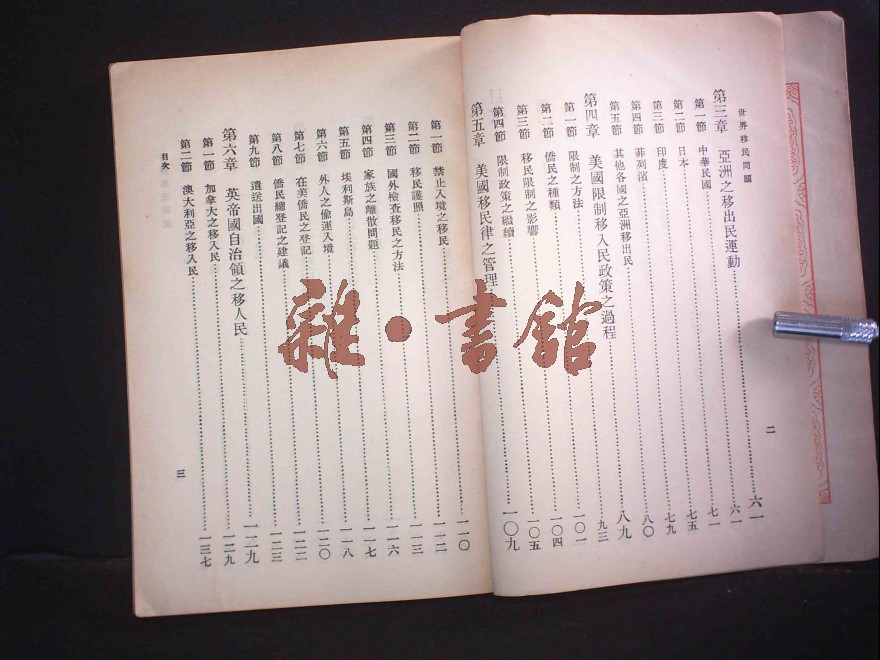 世界移民問題 二
第三章 亞洲之移出民運動……六一
第一節 中華民國……六一
第二節 日本……七一
第三節 印度……七五
第四節 菲列濱……七九
第五節 其他各國之亞洲移出民……八〇
第四章 美國限制移入民政策之過程……八九
第一節 限制之方法……九三
第二節 僑民之種類……一〇一
第三節 移民限制之影響……一〇四
第四節 限制政策之繼續……一〇五
第五章 美國移民律之管理……一〇九
第一節 禁止入境之移民……一一〇
第二節 移民護照……一一二
第三節 國外檢查移民之方法……一一三
第四節 家族之離散問題……一一六
第五節 埃利斯島……一一七
第六節 外人之偷運入境……一一八
第七節 在美僑民之登記……一二〇
第八節 僑民總登記之建議……一二二
第九節 遣送出國……一二三
第六章 英帝國自治領之移人民……一二九
第一節 加拿大之移入民……一二九
第二節 澳大利亞之移入民……一三七
目次 三
雜·書館